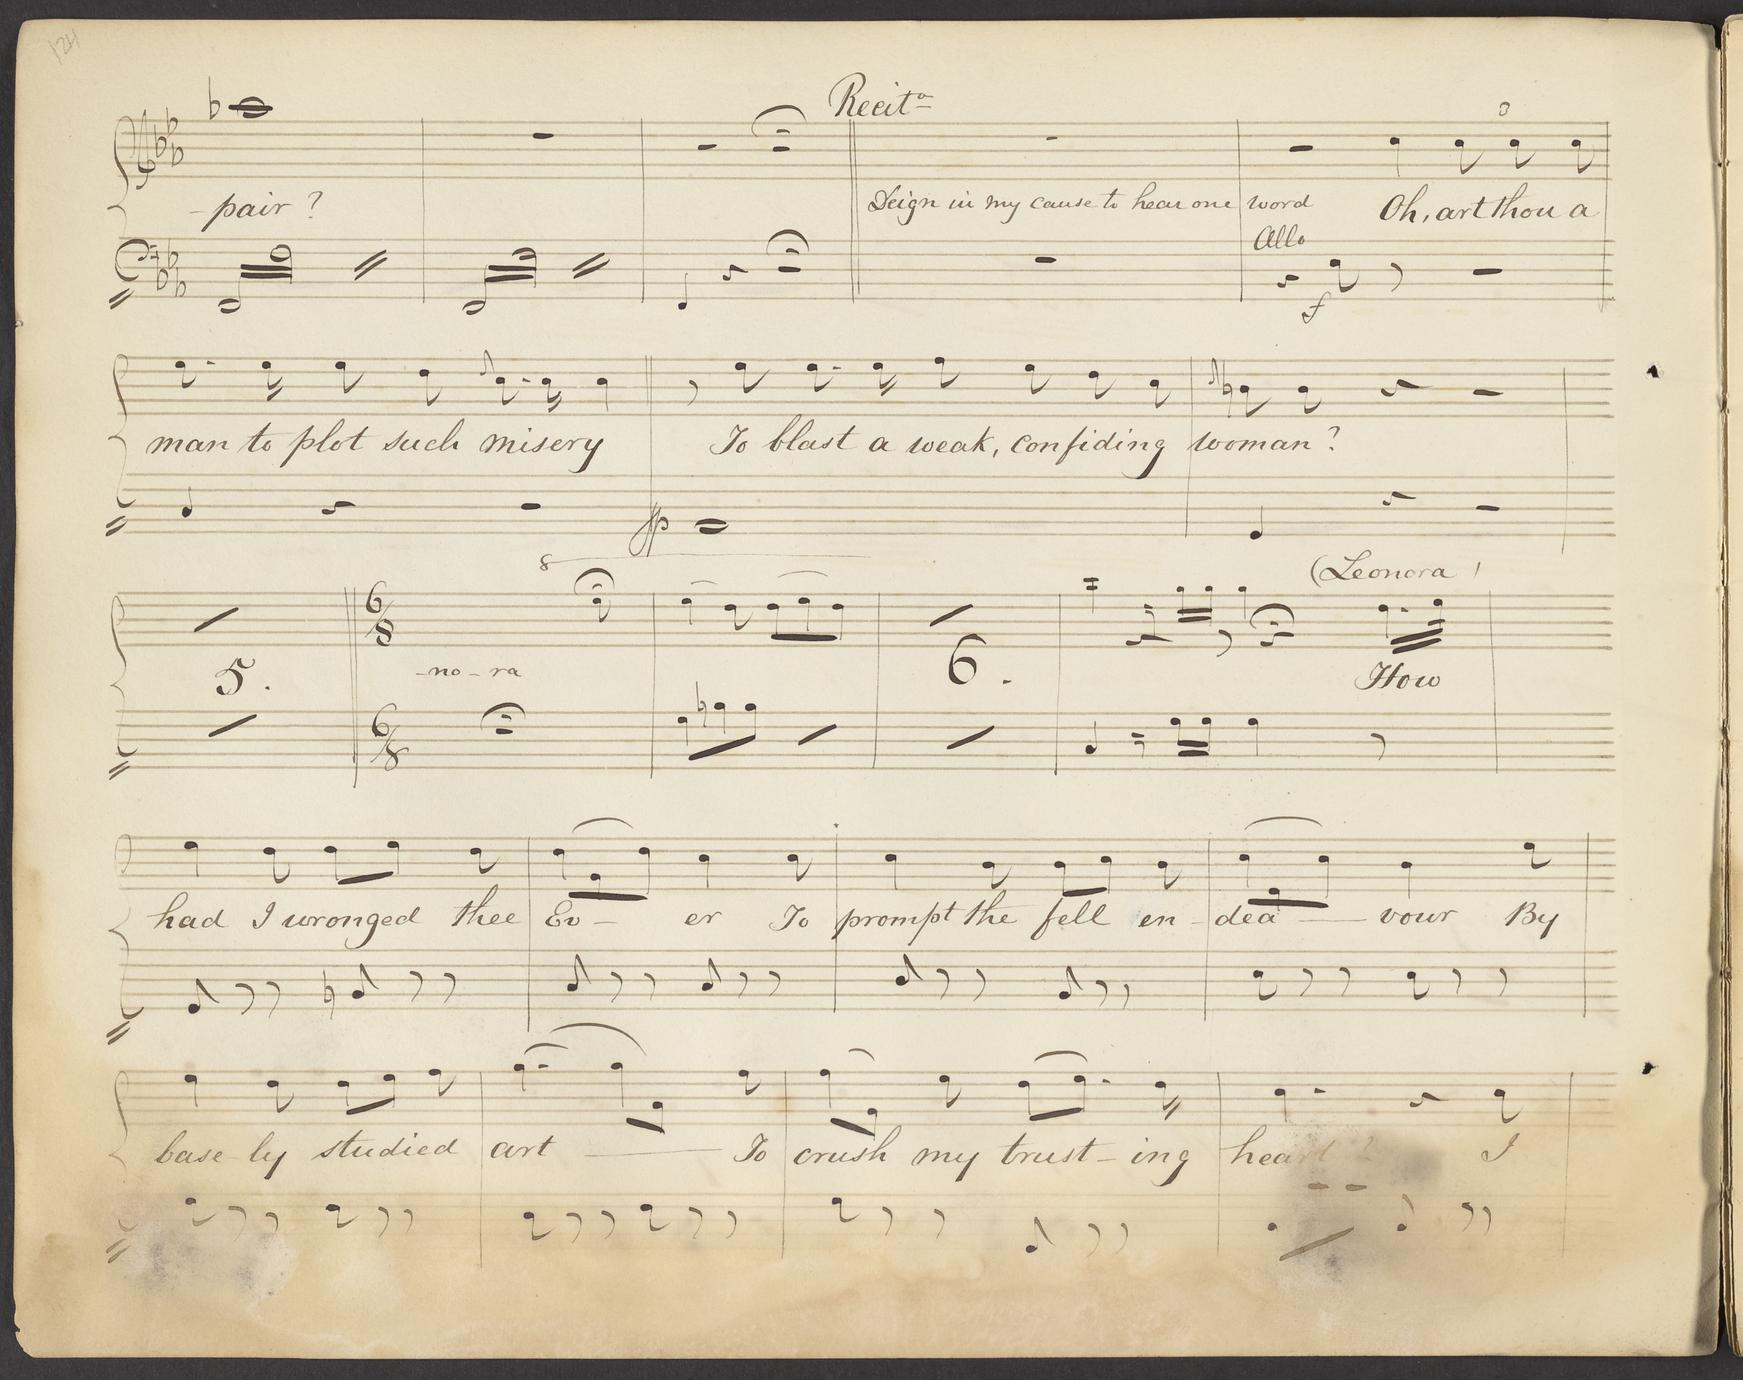 124
Recitº
- pair ?
Deign in my cause to hear one word Oh, art thou a
Allo
f
man to plot such misery To blast a weak, confiding woman ?
fp
8
(Leonora )
6/8
5. -no-ra 6. How
6/8
had I wronged thee Ev - er To prompt the fell en - dea - vour By
base - ly studied art - To crush my trust - ing heart ? I